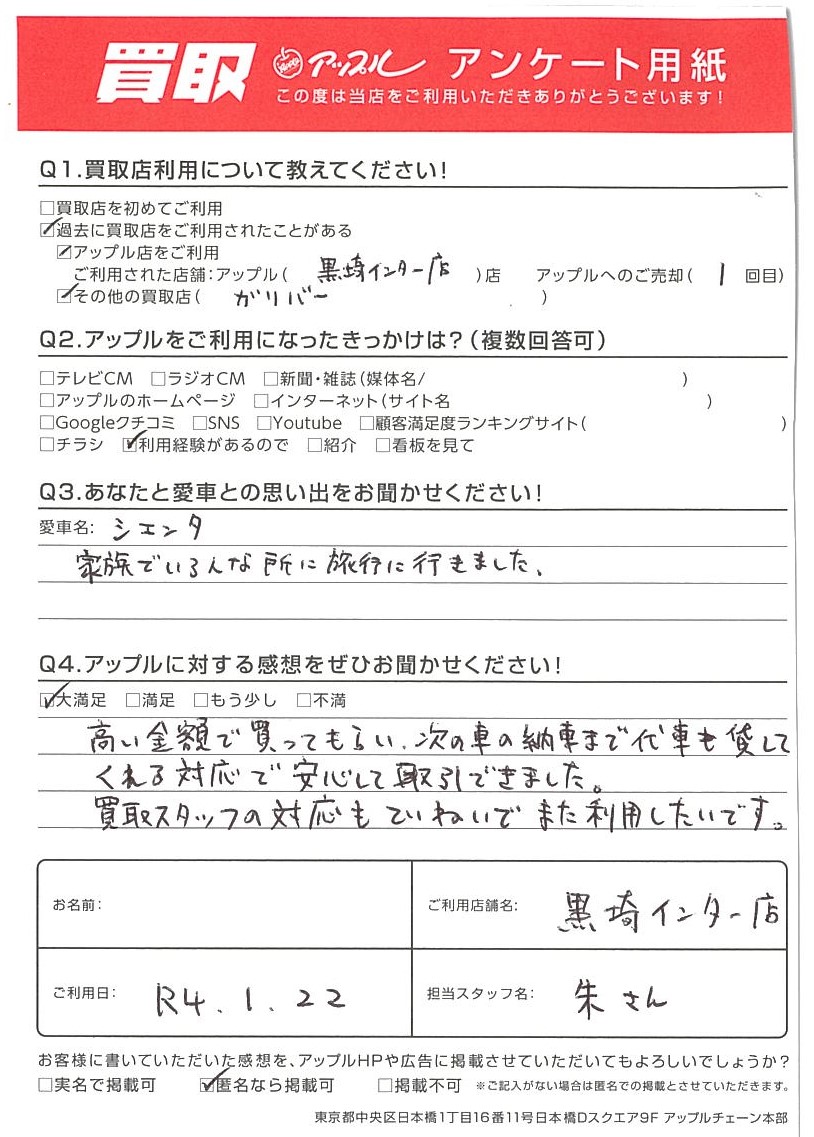 買取 アップル アンケート用紙
この度は当店をご利用いただきありがとうございます!
Q1.買取店利用について教えてください!
□買取店を初めてご利用
☑過去に買取店をご利用されたことがある
☑アップル店をご利用
ご利用された店舗:アップル( 黒埼インター店 )店 アップルへのご売却( 1 回目)
☑その他の買取店( ガリバー )
Q2.アップルをご利用になったきっかけは?(複数回答可)
□テレビCM □ラジオCM □新聞・雑誌(媒体名/ )
□アップルのホームページ □インターネット(サイト名 )
□Googleクチコミ □SNS □Youtube □顧客満足度ランキングサイト( )
□チラシ ☑利用経験があるので □紹介 □看板を見て
Q3.あなたと愛車との思い出をお聞かせください!
愛車名: シエンタ
家族でいろんな所に旅行に行きました、
Q4.アップルに対する感想をぜひお聞かせください!
☑大満足 □満足 □もう少し □不満
高い金額で買ってもらい、次の車の納車まで代車も貸して
くれる対応で安心して取引できました。
買取スタッフの対応もていねいでまた利用したいです。
お名前:
ご利用店舗名: 黒埼インター店
ご利用日: R4.1.22
担当スタッフ名: 朱さん
お客様に書いていただいた感想を、アップルHPや広告に掲載させていただいてもよろしいでしょうか?
□実名で掲載可 ☑匿名なら掲載可 □掲載不可 ※ご記入がない場合は匿名での掲載とさせていただきます。
東京都中央区日本橋1丁目16番11号日本橋Dスクエア9F アップルチェーン本部